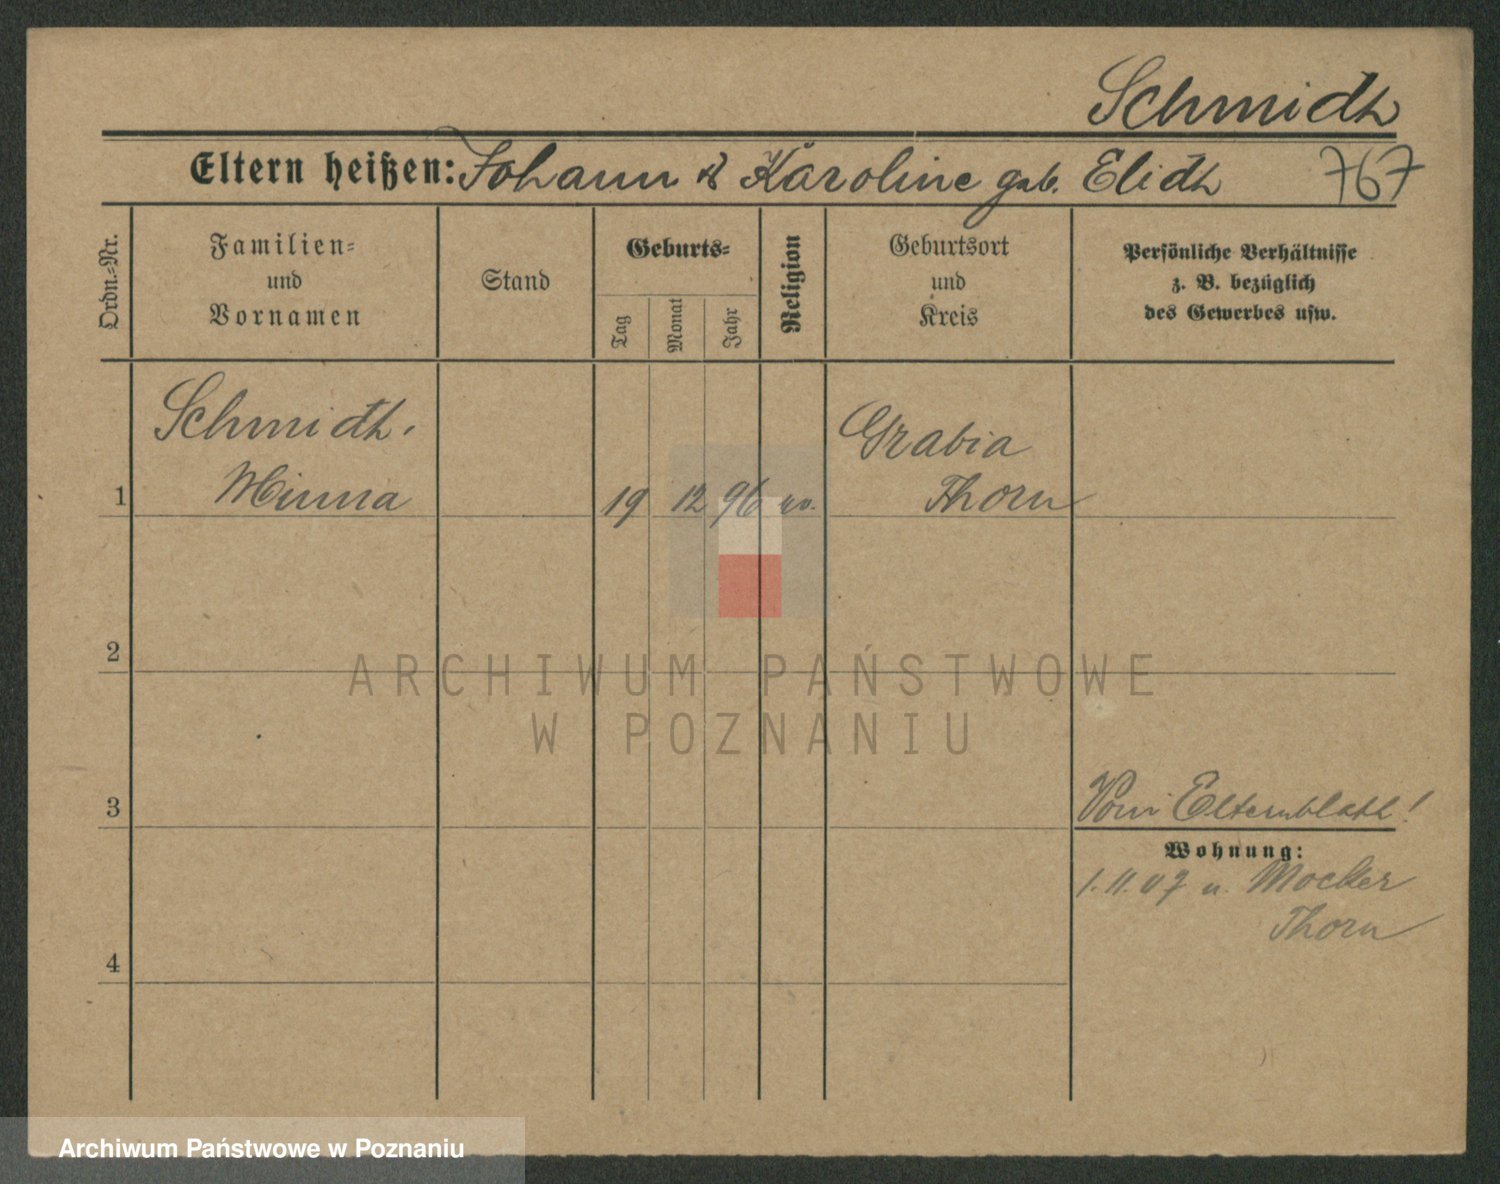 Schmidt
Eltern heißen: Johann & Karoline geb. Elidt 767
Ordn.=Nr.
Familien=
und
Vornamen
Stand
Geburts=
Tag
Monat
Jahr
Religion
Geburtsort
und
Kreis
Persönliche Verhältnisse
z. B. bezüglich
des Gewerbes usw.
Schmidt,
1 Minna 19 12 96 ev.
Grabia
Thorn
2
ARCHIWUM PAŃSTWOWE
W POZNANIU
3
Vom Elternblatt!
Wohnung:
1.11.07 n. Mocker
Thorn
4
Archiwum Państwowe w Poznaniu